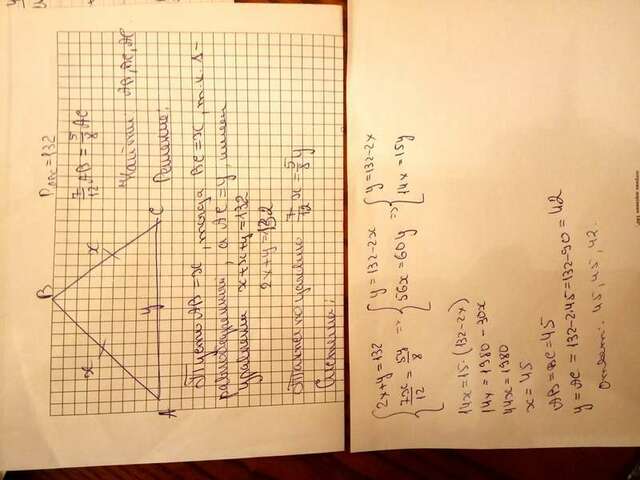 P ABC = 132
7/12 AB = 5/8 AC
Найти: AB, BC, AC
Решение:
B
x
x
A
y
C
Пусть AB = x тогда BC = x, т.к. Δ-
равнобедренный, а AC = y, имеем
уравнение x+x+y=132
2x+y=132
Также по условию 7/12 x = 5/8 y
Система:
{2x+y=132 {y=132-2x {y=132-2x
{7x/12 = 5y/8 => {56x=60y => {14x=15y
14x=15·(132-2x)
14x=1980-30x
44x=1980
x=45
AB=BC=45
y=AC=132-2·45=132-90=42
Ответ: 45, 45, 42.